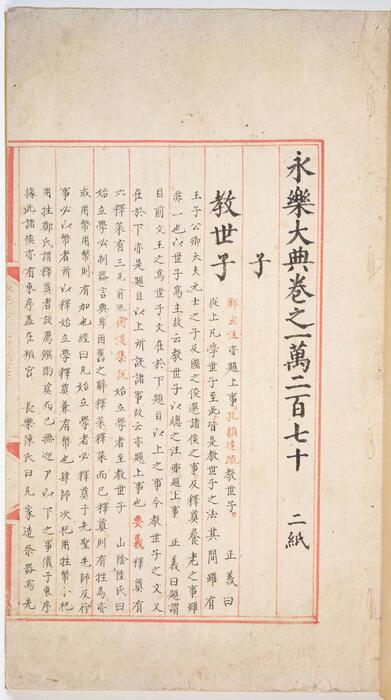 永樂大典卷之一萬二百七十 二紙
子
教世子
鄭玄注亦題上事孔穎達疏教世子。 正義曰
從上凡學世子至此皆是教世子之法其間雖有
王子公卿大夫元士之子及國之俊選諸侯之事及釋奠養老之事雖
非一也以世子為主故云教世子以總之注亦題上事 正義曰題謂
目前文王之為世子文在於下題目以上之事今教世子之文又
在於下亦是題目以上所設諸事故云亦題上事也要義釋奠有
六釋菜有三見前衛湜集說始立學者至教世子 山陰陸氏曰
始立學必制器言興因舊之辭釋菜釋菜而已釋奠則有牲焉亦
或用幣用幣則有加也經曰凡始立學者必釋奠于先聖先師及行
事必以幣者所以釋始立學釋奠兼有幣也肆師次祀用牲幣小祀
用牲鄭氏謂釋奠者設薦饌酌奠而已無迎尸以下之事償于東序
據此諸侯亦有東序蓋在頖宮 長樂陳氏曰凡家造祭器為先